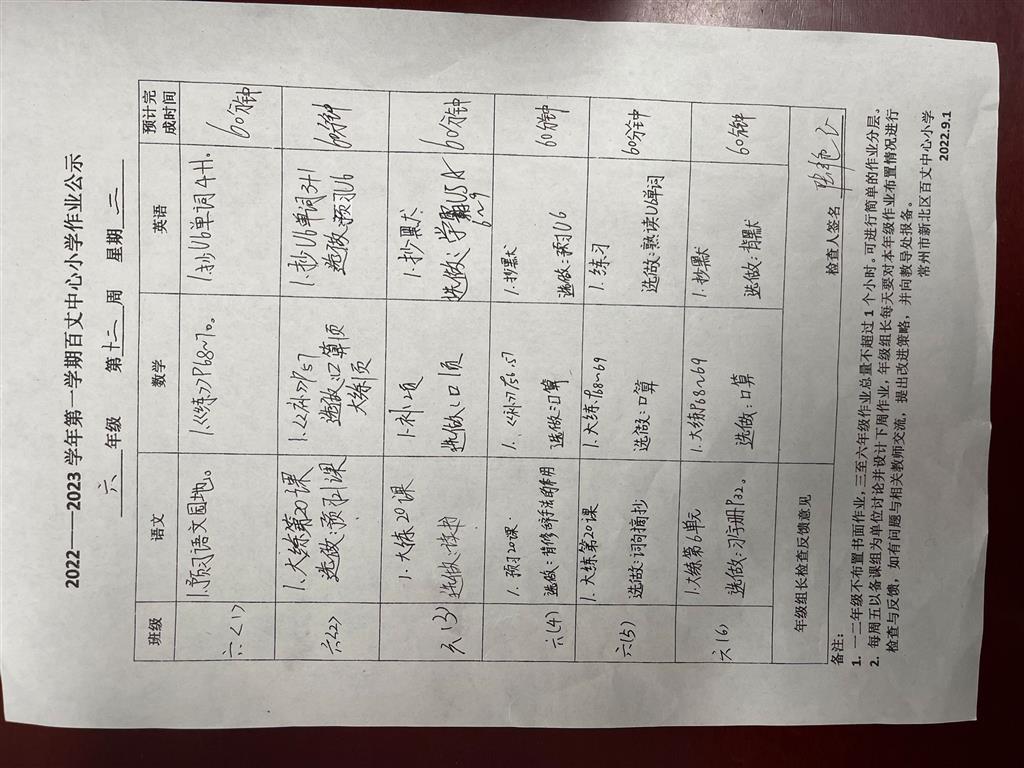 2022——2023学年第一学期百丈中心小学作业公示
六 年级 第 十二 周 星期 三
班级 语文 数学 英语 预计完成时间
六<1> 1.预习语文园地。 1.《练习》P68~70。 1.抄U6单词4+1。 60分钟
六(2) 1.大练第20课 1.《补》P57 1.抄U6单词3+1 60分钟
选做:预习21课 选做:口算1页 选做:预习U6
大练1页
六(3) 1.大练20课 1.补2页 1.抄默 60分钟
选做: 选做:口1页 选做:
六(4) 1.预习20课. 1.《补》P56.57 1.抄默 60分钟
选做: 选做:口算 选做:预习U6
六(5) 1.大练第20课 1.大练P68~69 1.练习 60分钟
选做:词句摘抄 选做:口算 选做:熟读U6单词
六(6) 1.大练第6单元 1.大练P68~69 1.抄默 60分钟
选做:习字册P32。 选做:口算 选做:背默
年级组长检查反馈意见 检查人签名
备注:
1. 一二年级不布置书面作业,三至六年级作业总量不超过 1 个小时。可进行简单的作业分层。
2. 每周五以备课组为单位讨论并设计下周作业,年级组长每天要对本年级作业布置情况进行
检查与反馈,如有问题与相关教师交流,提出改进策略,并向教导处报备。
常州市新北区百丈中心小学
2022.9.1